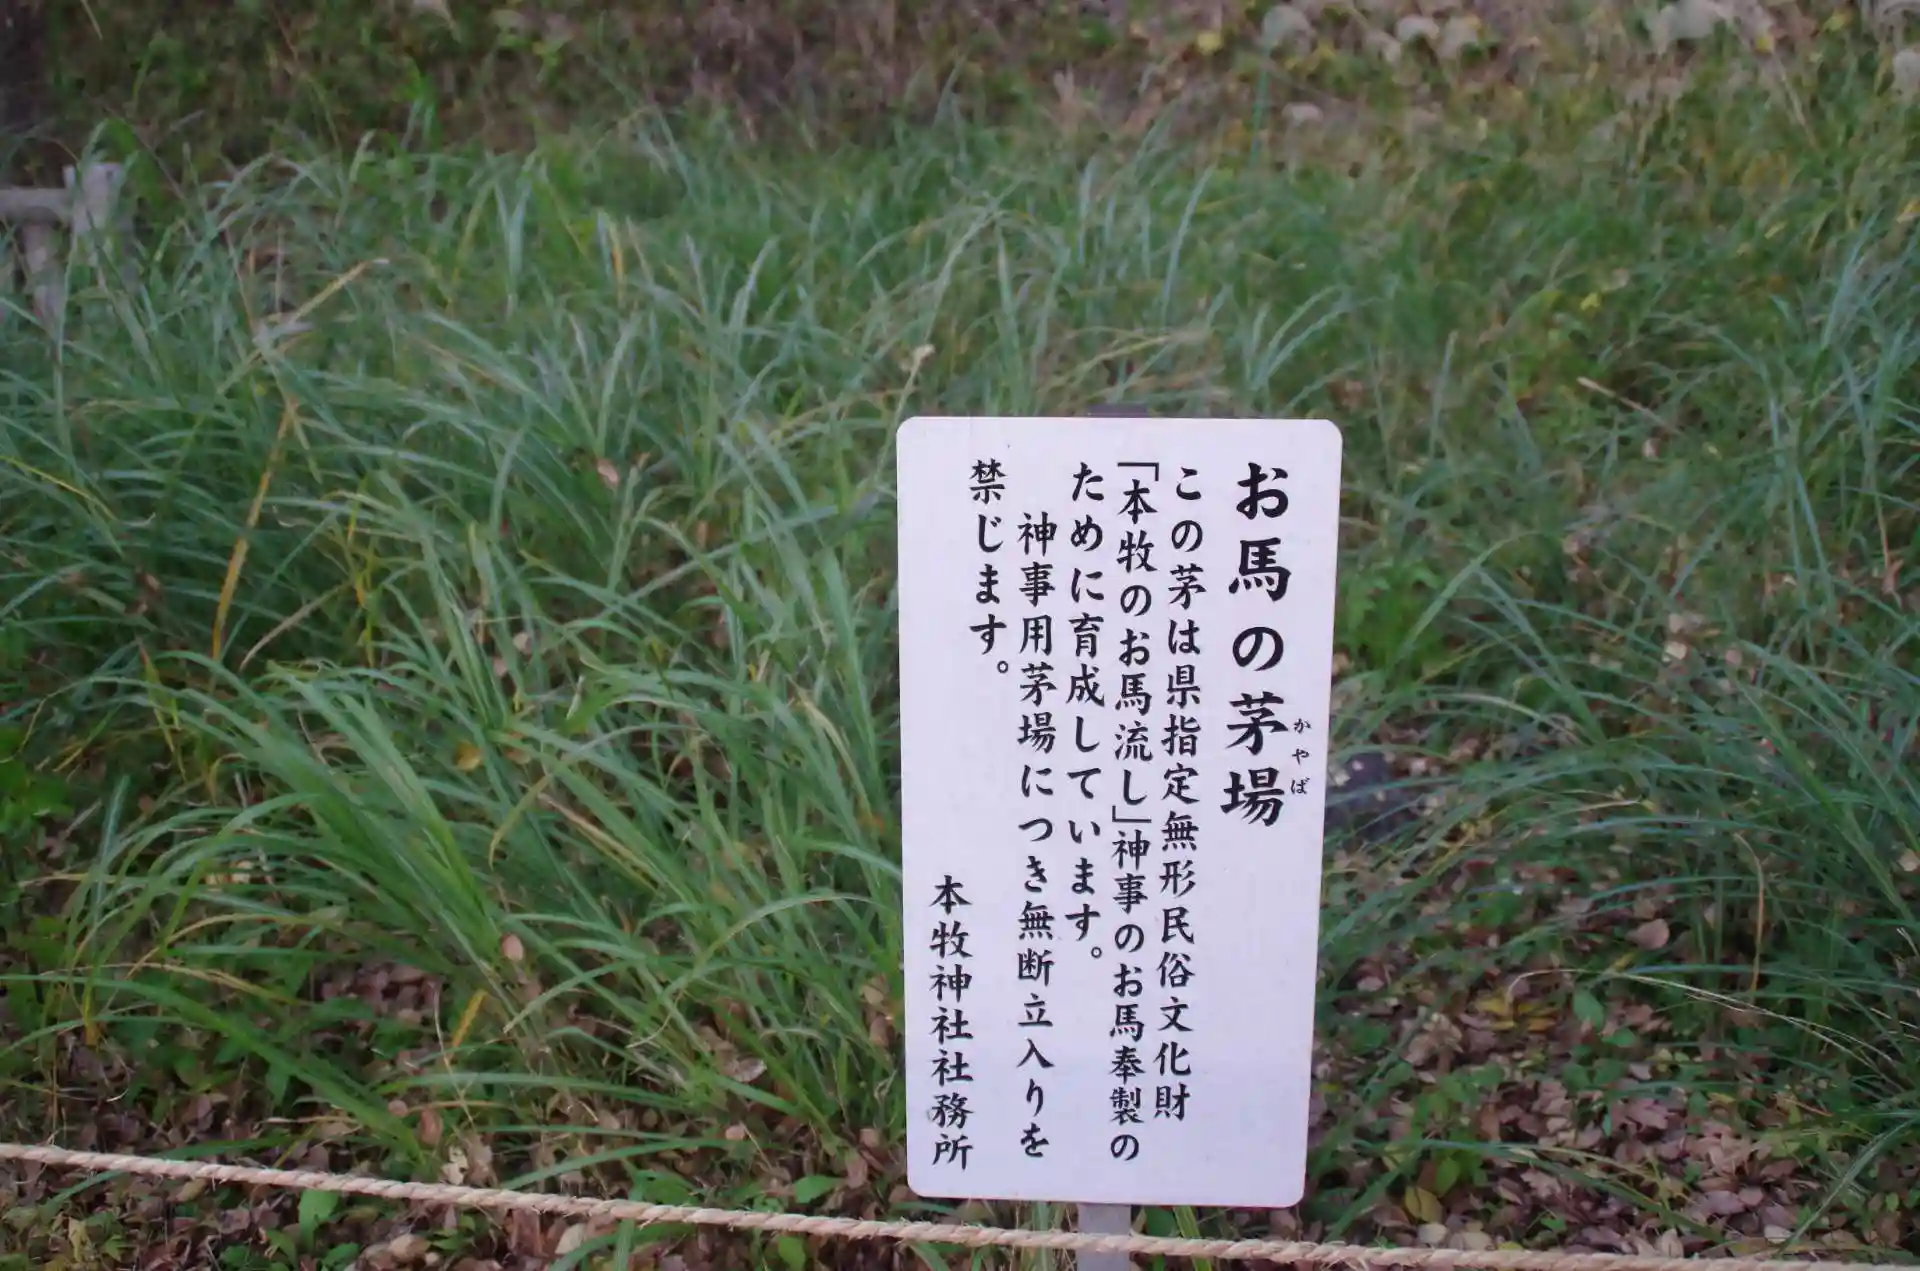 お馬の茅場
かやば
この茅は県指定無形民俗文化財
「本牧のお馬流し」神事のお馬奉製の
ために育成しています。
神事用茅場につき無断立入りを
禁じます。
本牧神社社務所